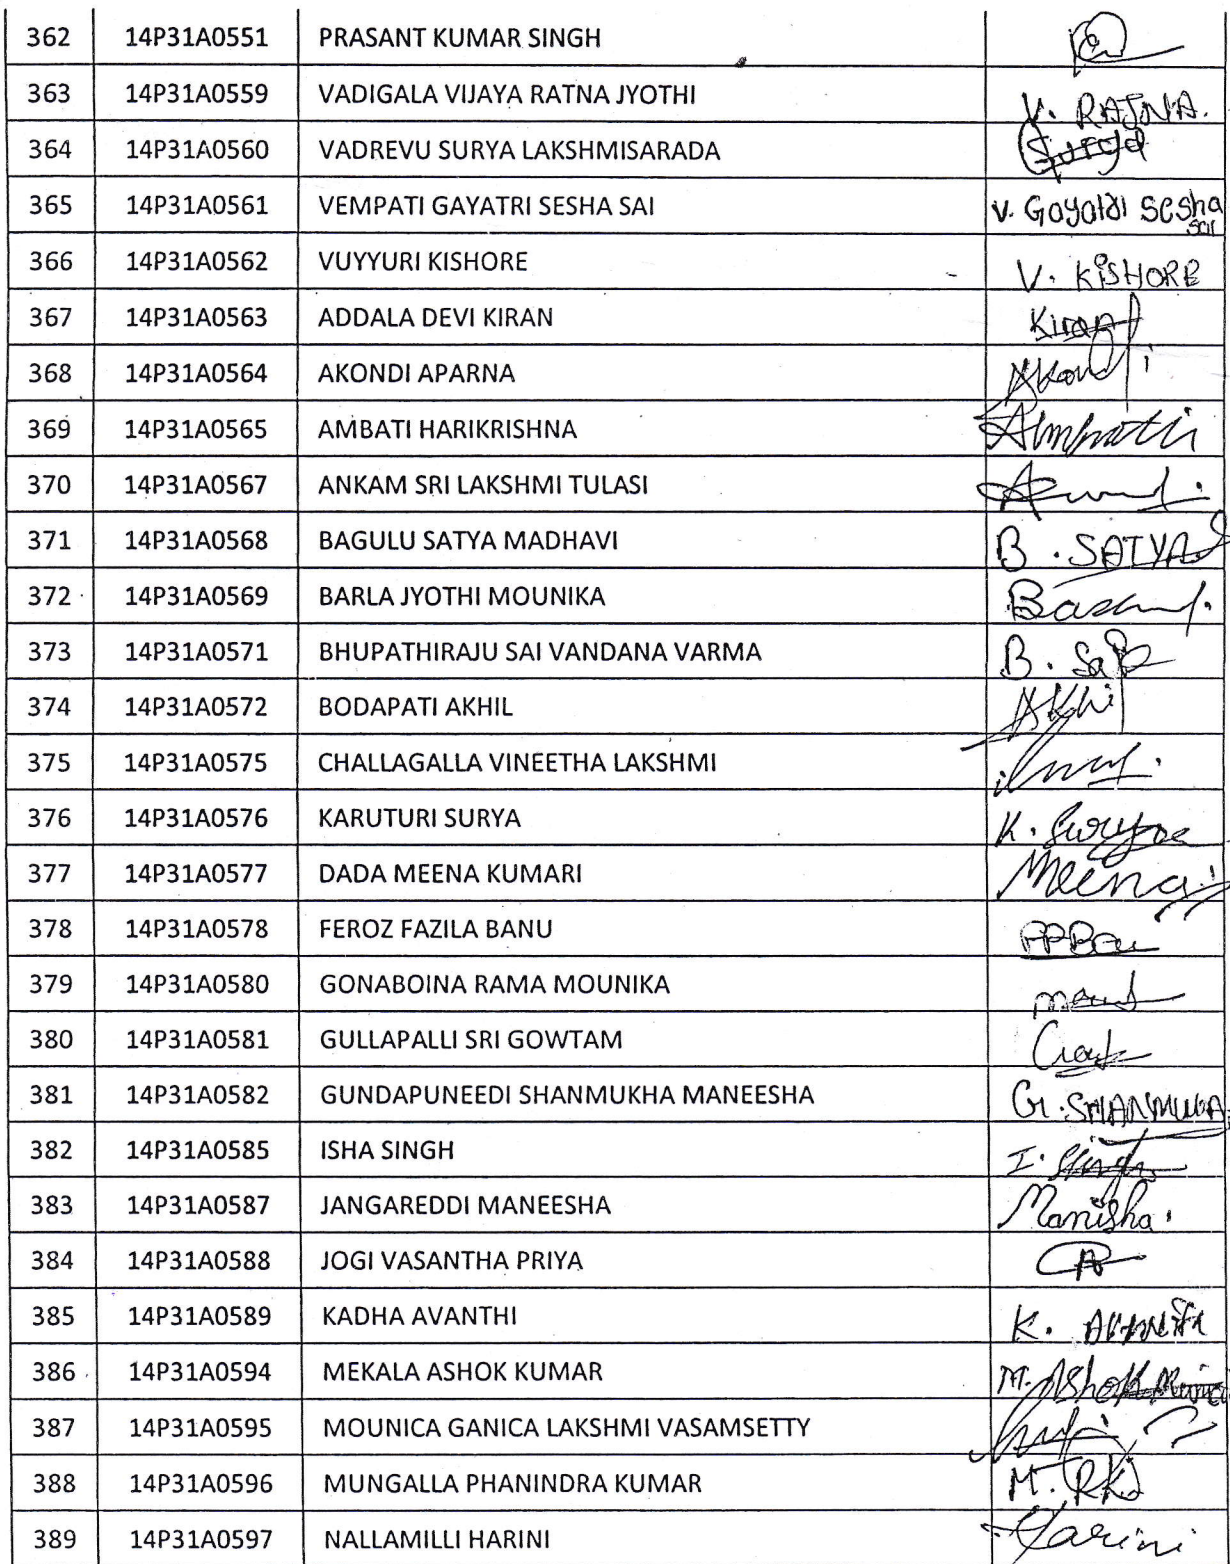 362 14P31A0551 PRASANT KUMAR SINGH
363 14P31A0559 VADIGALA VIJAYA RATNA JYOTHI V. RATNA.
364 14P31A0560 VADREVU SURYA LAKSHMISARADA
365 14P31A0561 VEMPATI GAYATRI SESHA SAI V. Gayatri Sesha sai
366 14P31A0562 VUYYURI KISHORE V. KISHORE
367 14P31A0563 ADDALA DEVI KIRAN Kiran
368 14P31A0564 AKONDI APARNA Akondi
369 14P31A0565 AMBATI HARIKRISHNA
370 14P31A0567 ANKAM SRI LAKSHMI TULASI
371 14P31A0568 BAGULU SATYA MADHAVI B. SATYA
372 14P31A0569 BARLA JYOTHI MOUNIKA
373 14P31A0571 BHUPATHIRAJU SAI VANDANA VARMA B. Sai
374 14P31A0572 BODAPATI AKHIL Akhil
375 14P31A0575 CHALLAGALLA VINEETHA LAKSHMI
376 14P31A0576 KARUTURI SURYA K. Surya
377 14P31A0577 DADA MEENA KUMARI Meena
378 14P31A0578 FEROZ FAZILA BANU
379 14P31A0580 GONABOINA RAMA MOUNIKA
380 14P31A0581 GULLAPALLI SRI GOWTAM
381 14P31A0582 GUNDAPUNEEDI SHANMUKHA MANEESHA G. SHANMUKA
382 14P31A0585 ISHA SINGH I. Singh
383 14P31A0587 JANGAREDDI MANEESHA Manisha.
384 14P31A0588 JOGI VASANTHA PRIYA
385 14P31A0589 KADHA AVANTHI K.
386 14P31A0594 MEKALA ASHOK KUMAR M. Ashok
387 14P31A0595 MOUNICA GANICA LAKSHMI VASAMSETTY
388 14P31A0596 MUNGALLA PHANINDRA KUMAR
389 14P31A0597 NALLAMILLI HARINI Harini